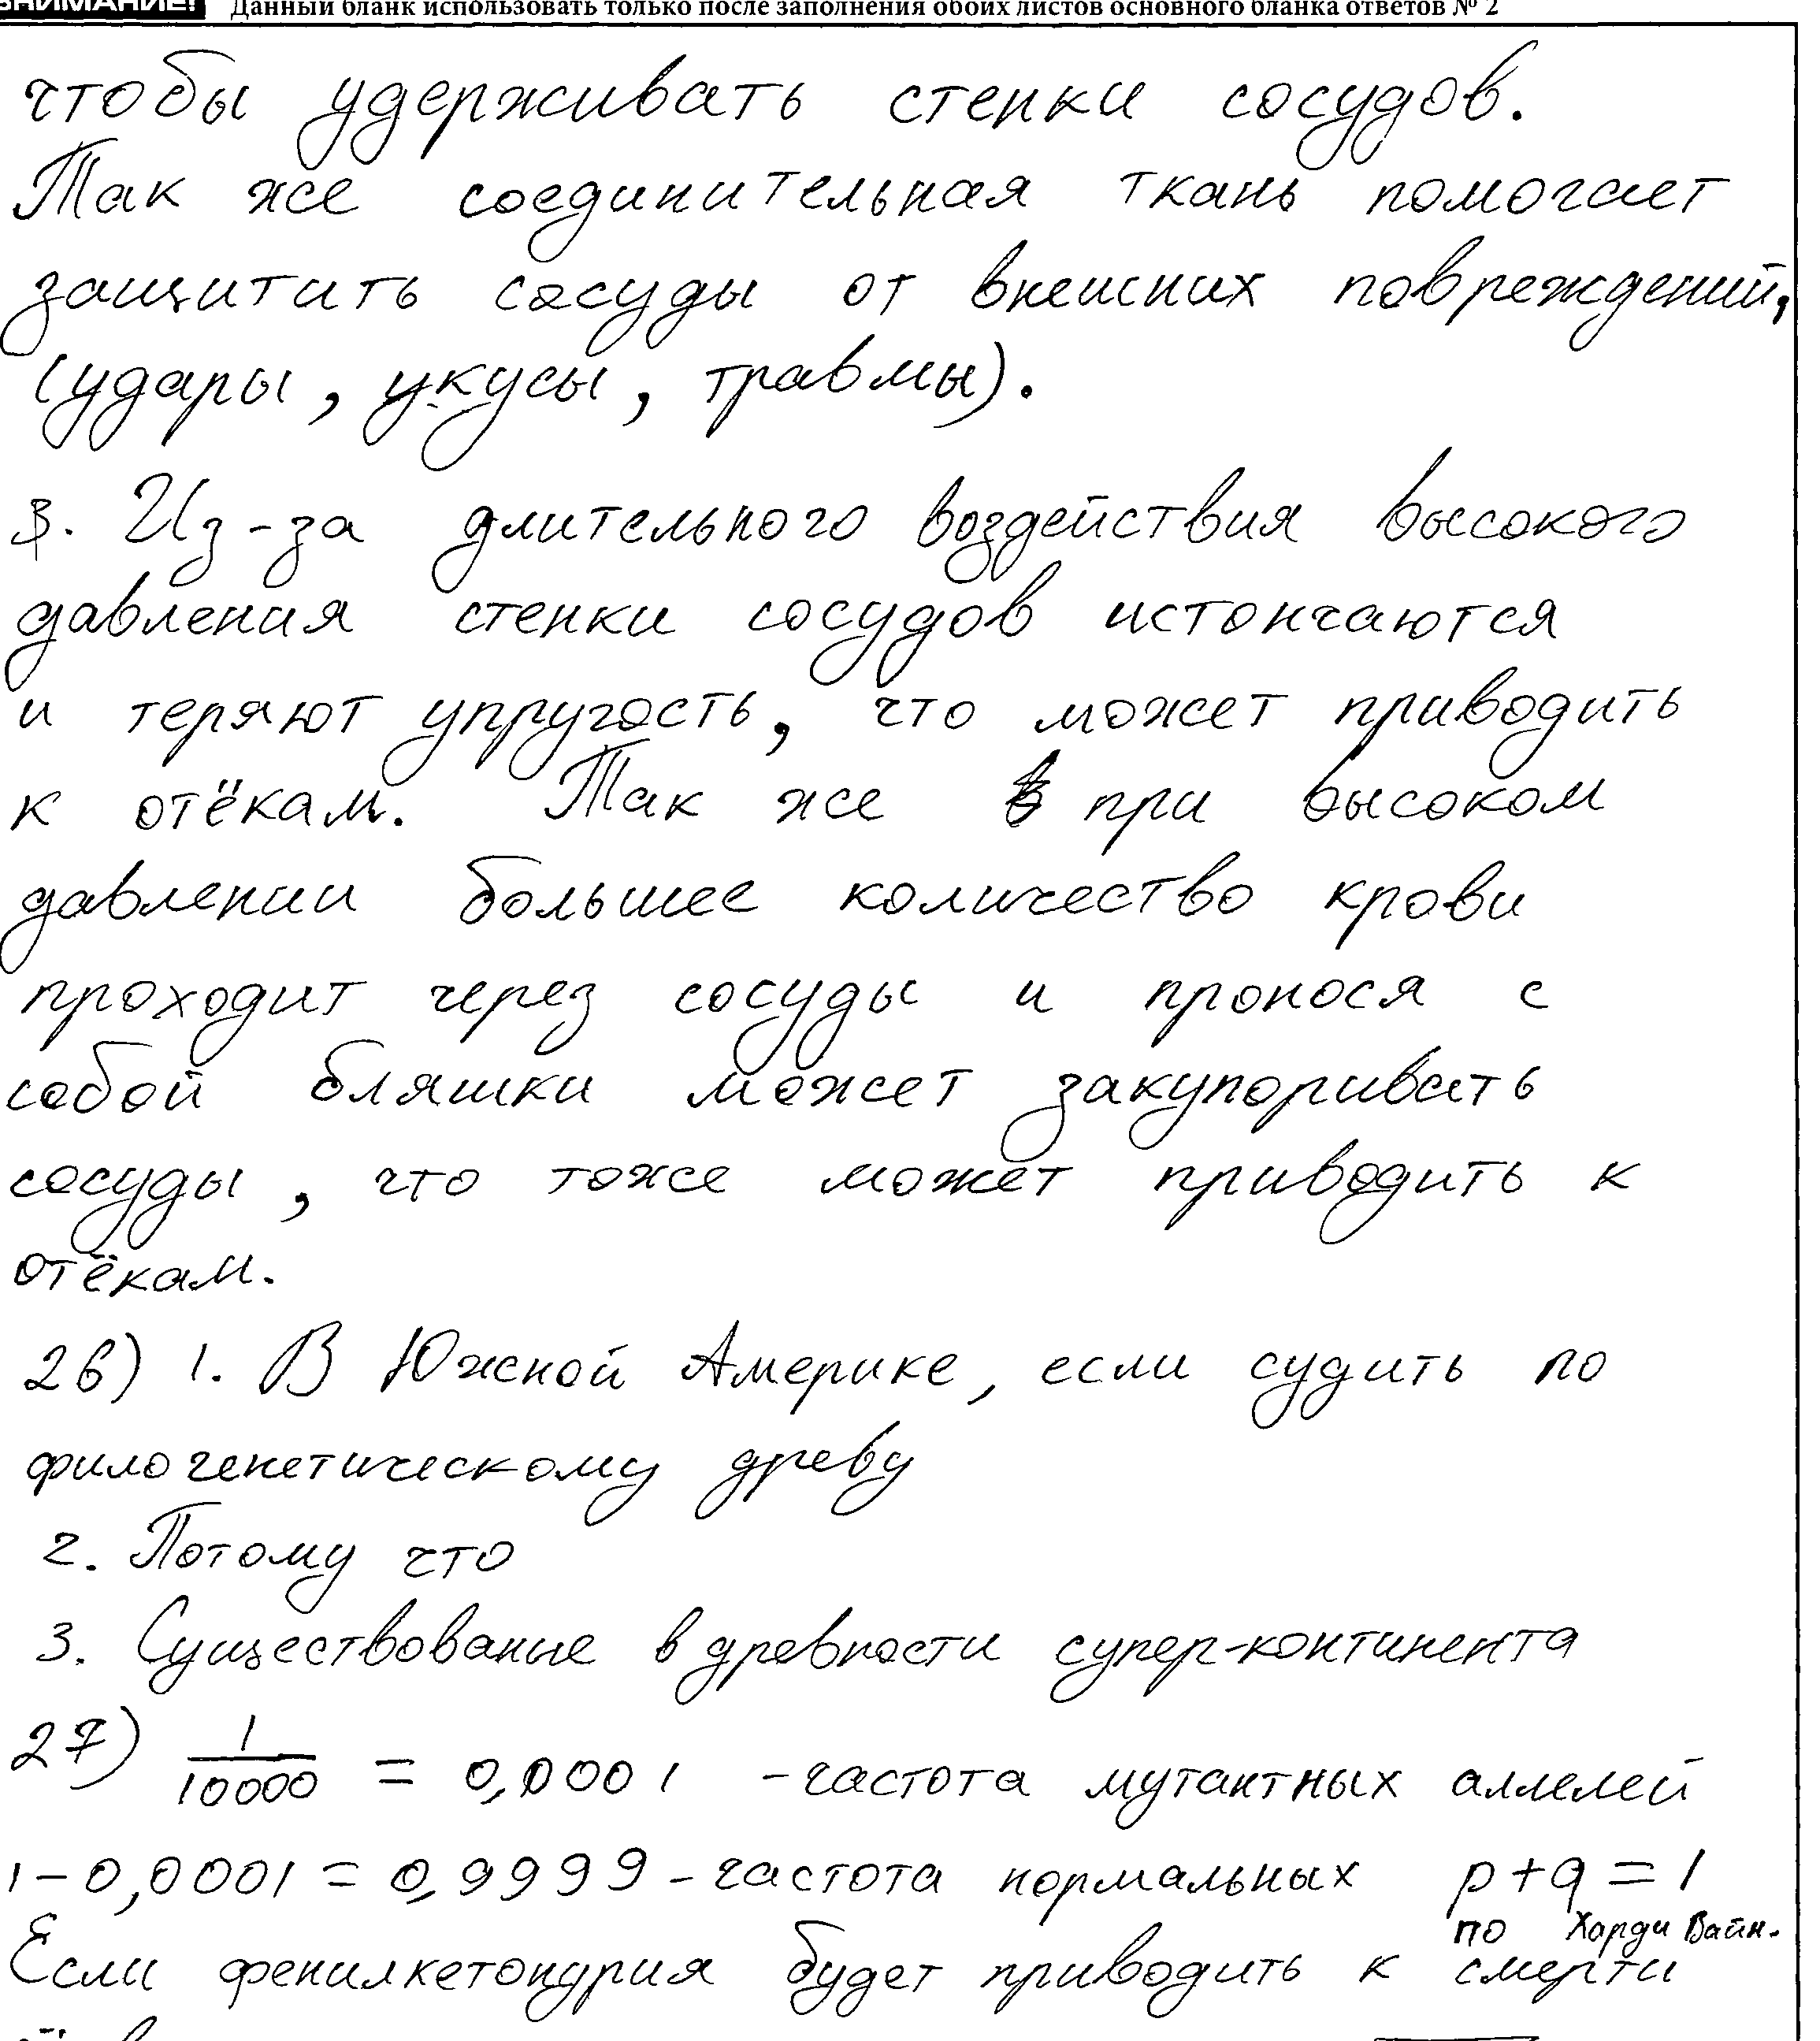 ВНИМАНИЕ! Данный бланк использовать только после заполнения обоих листов основного бланка ответов № 2
чтобы удерживать стенки сосудов.
Так же соединительная ткань помогает
защитить сосуды от внешних повреждений,
(удары, укусы, травмы).
3. Из-за длительного воздействия высокого
давления стенки сосудов истончаются
и теряют упругость, что может приводить
к отёкам. Так же при высоком
давлении большее количество крови
проходит через сосуды и пронося с
собой бляшки может закупоривать
сосуды, что тоже может приводить к
отёкам.
26) 1. В Южной Америке, если судить по
филогенетическому древу
2. Потому что
3. Существование в древности супер-континента
27) 1/10000 = 0,0001 - частота мутантных аллелей
1-0,0001 = 0,9999 - частота нормальных p+q=1
по Харди Вайн.
Если фенилкетонурия будет приводить к смерти